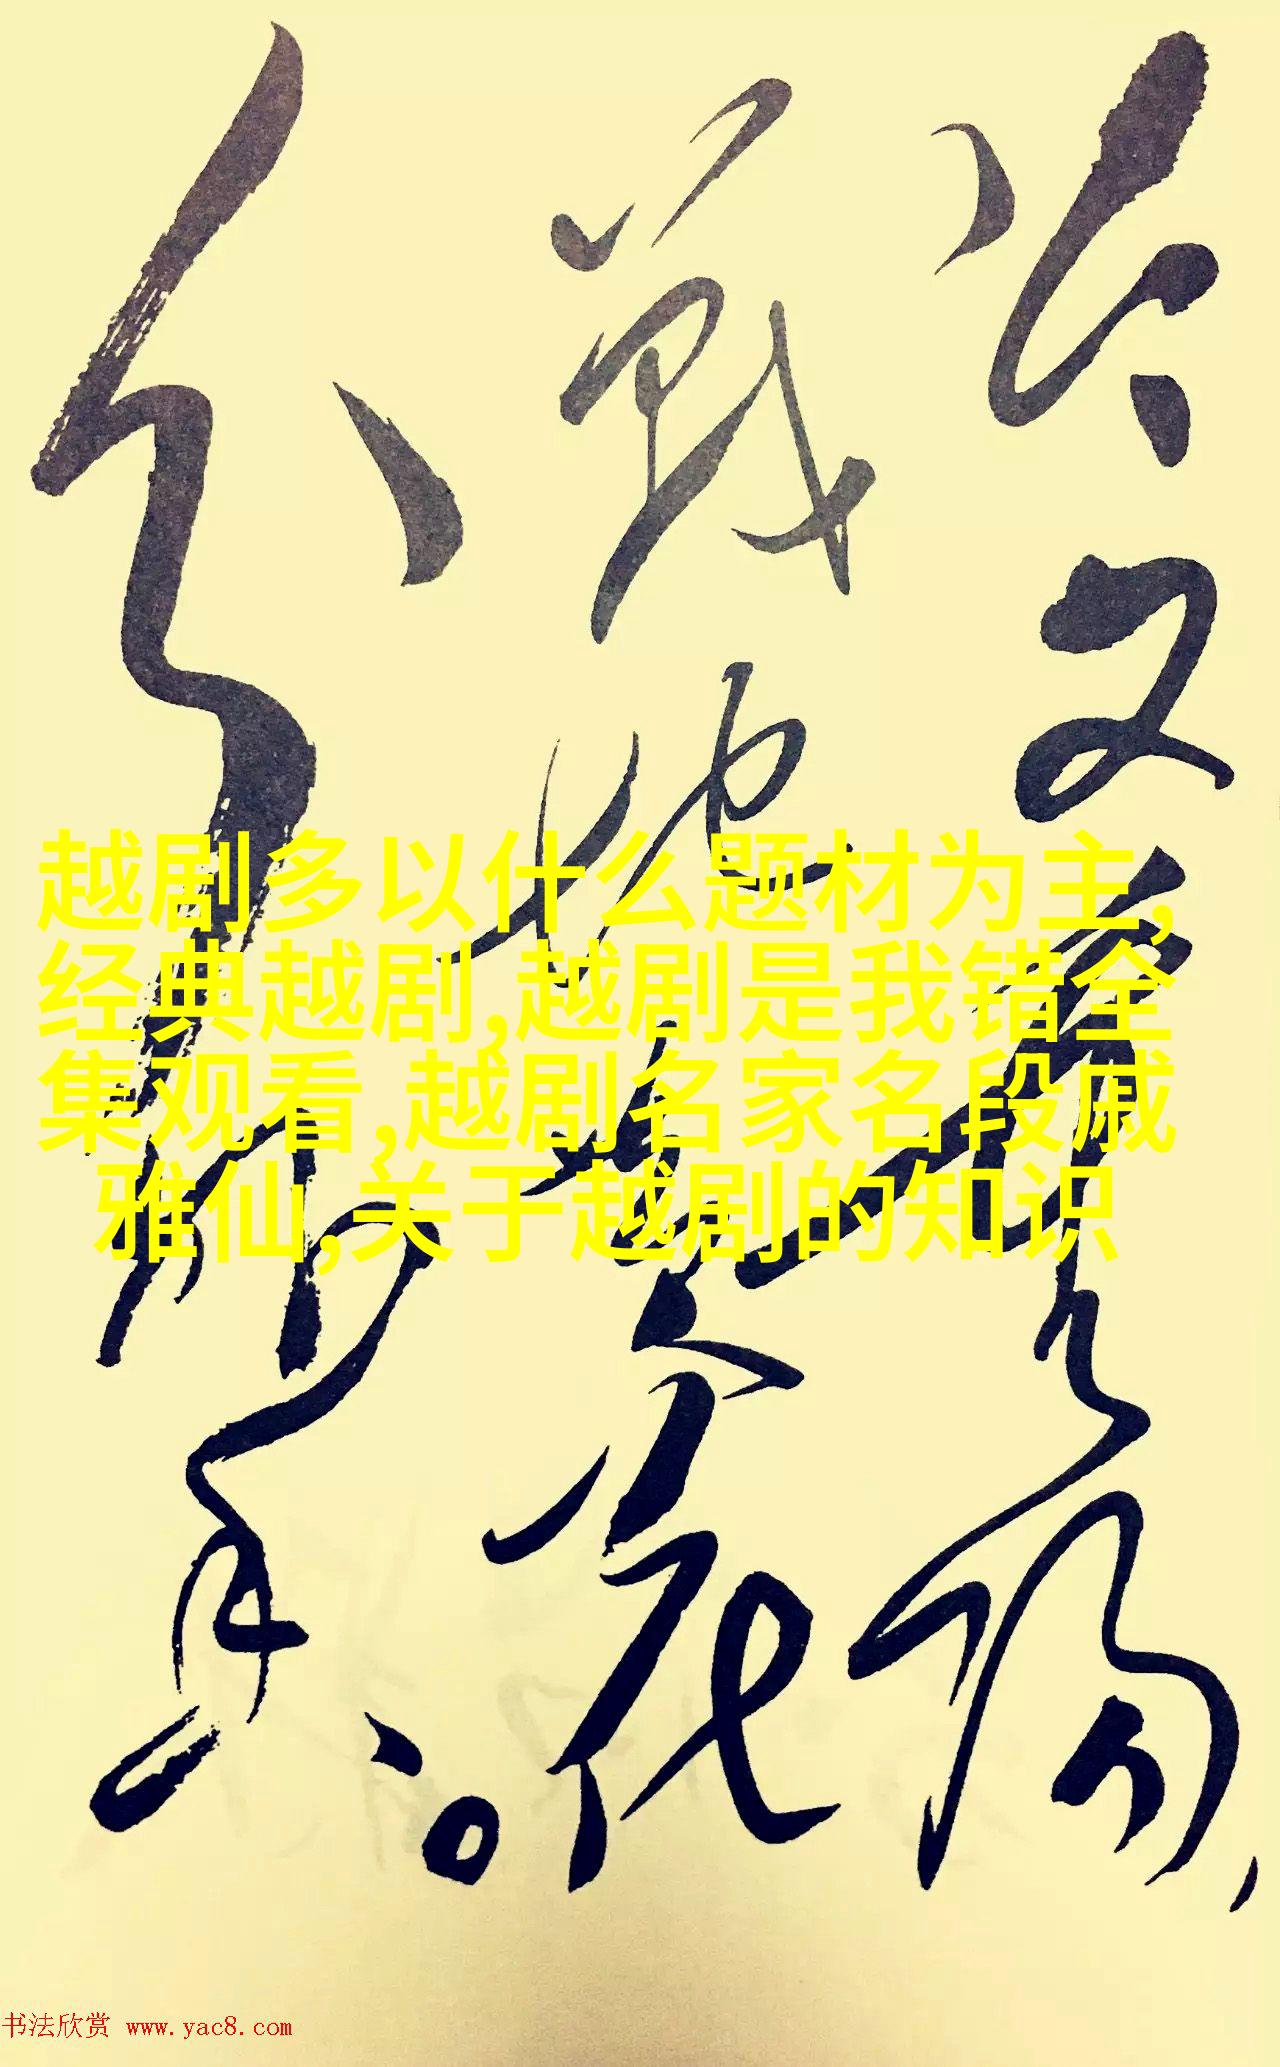 今又重陽，
戰地黄花
分外香。
越剧多以什么题材为主,
经典越剧,越剧是我错全
集观看,越剧名家名段戚
雅仙,关于越剧的知识
书法欣赏 www.yac8.com